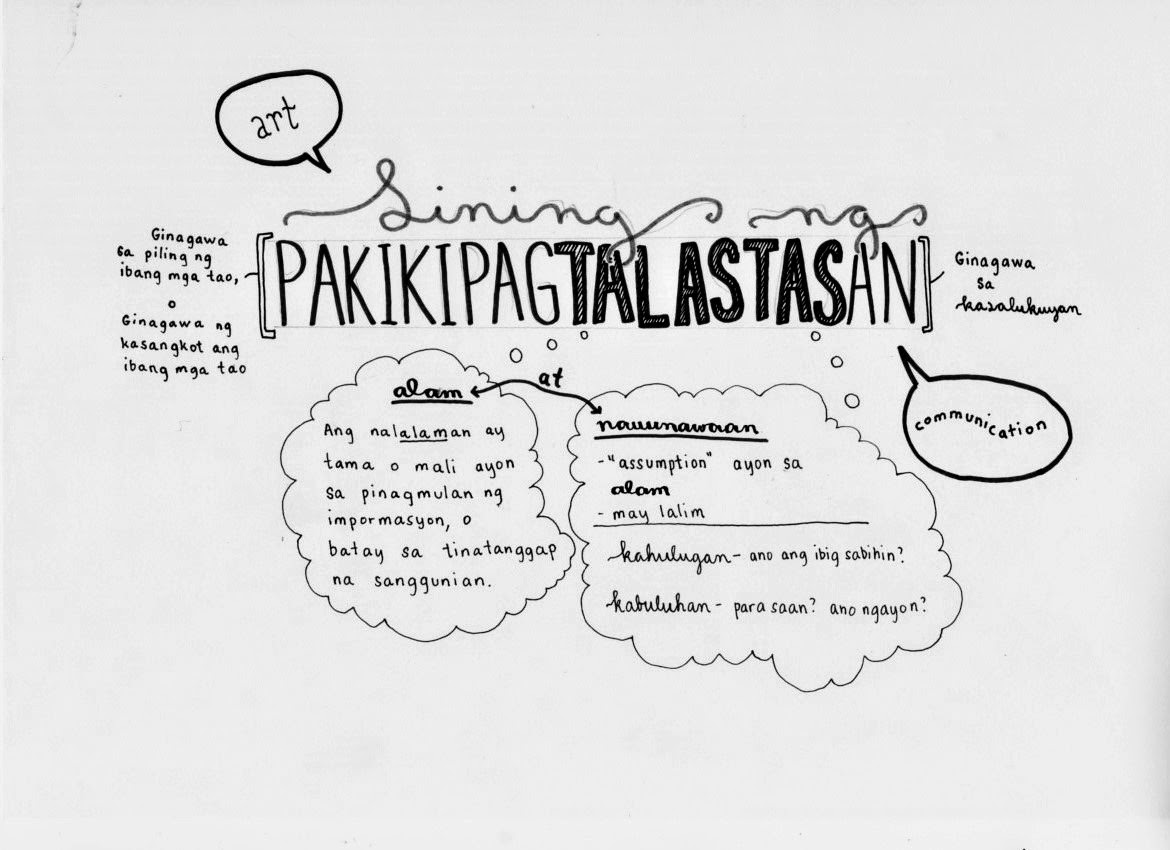 art
Sining ng
PAKIKIPAGTALASTASAN
Ginagawa
sa piling ng
ibang mga tao,
o
Ginagawa ng
kasangkot ang
ibang mga tao
Ginagawa
sa
kasalukuyan
communication
alam
at
Ang nalalaman ay
tama o mali ayon
sa pinagmulan ng
impormasyon, o
batay sa tinatanggap
na sanggunian.
nauunawaan
-"assumption" ayon sa
alam
- may lalim
kahulugan - ano ang ibig sabihin?
kabuluhan - para saan? ano ngayon?